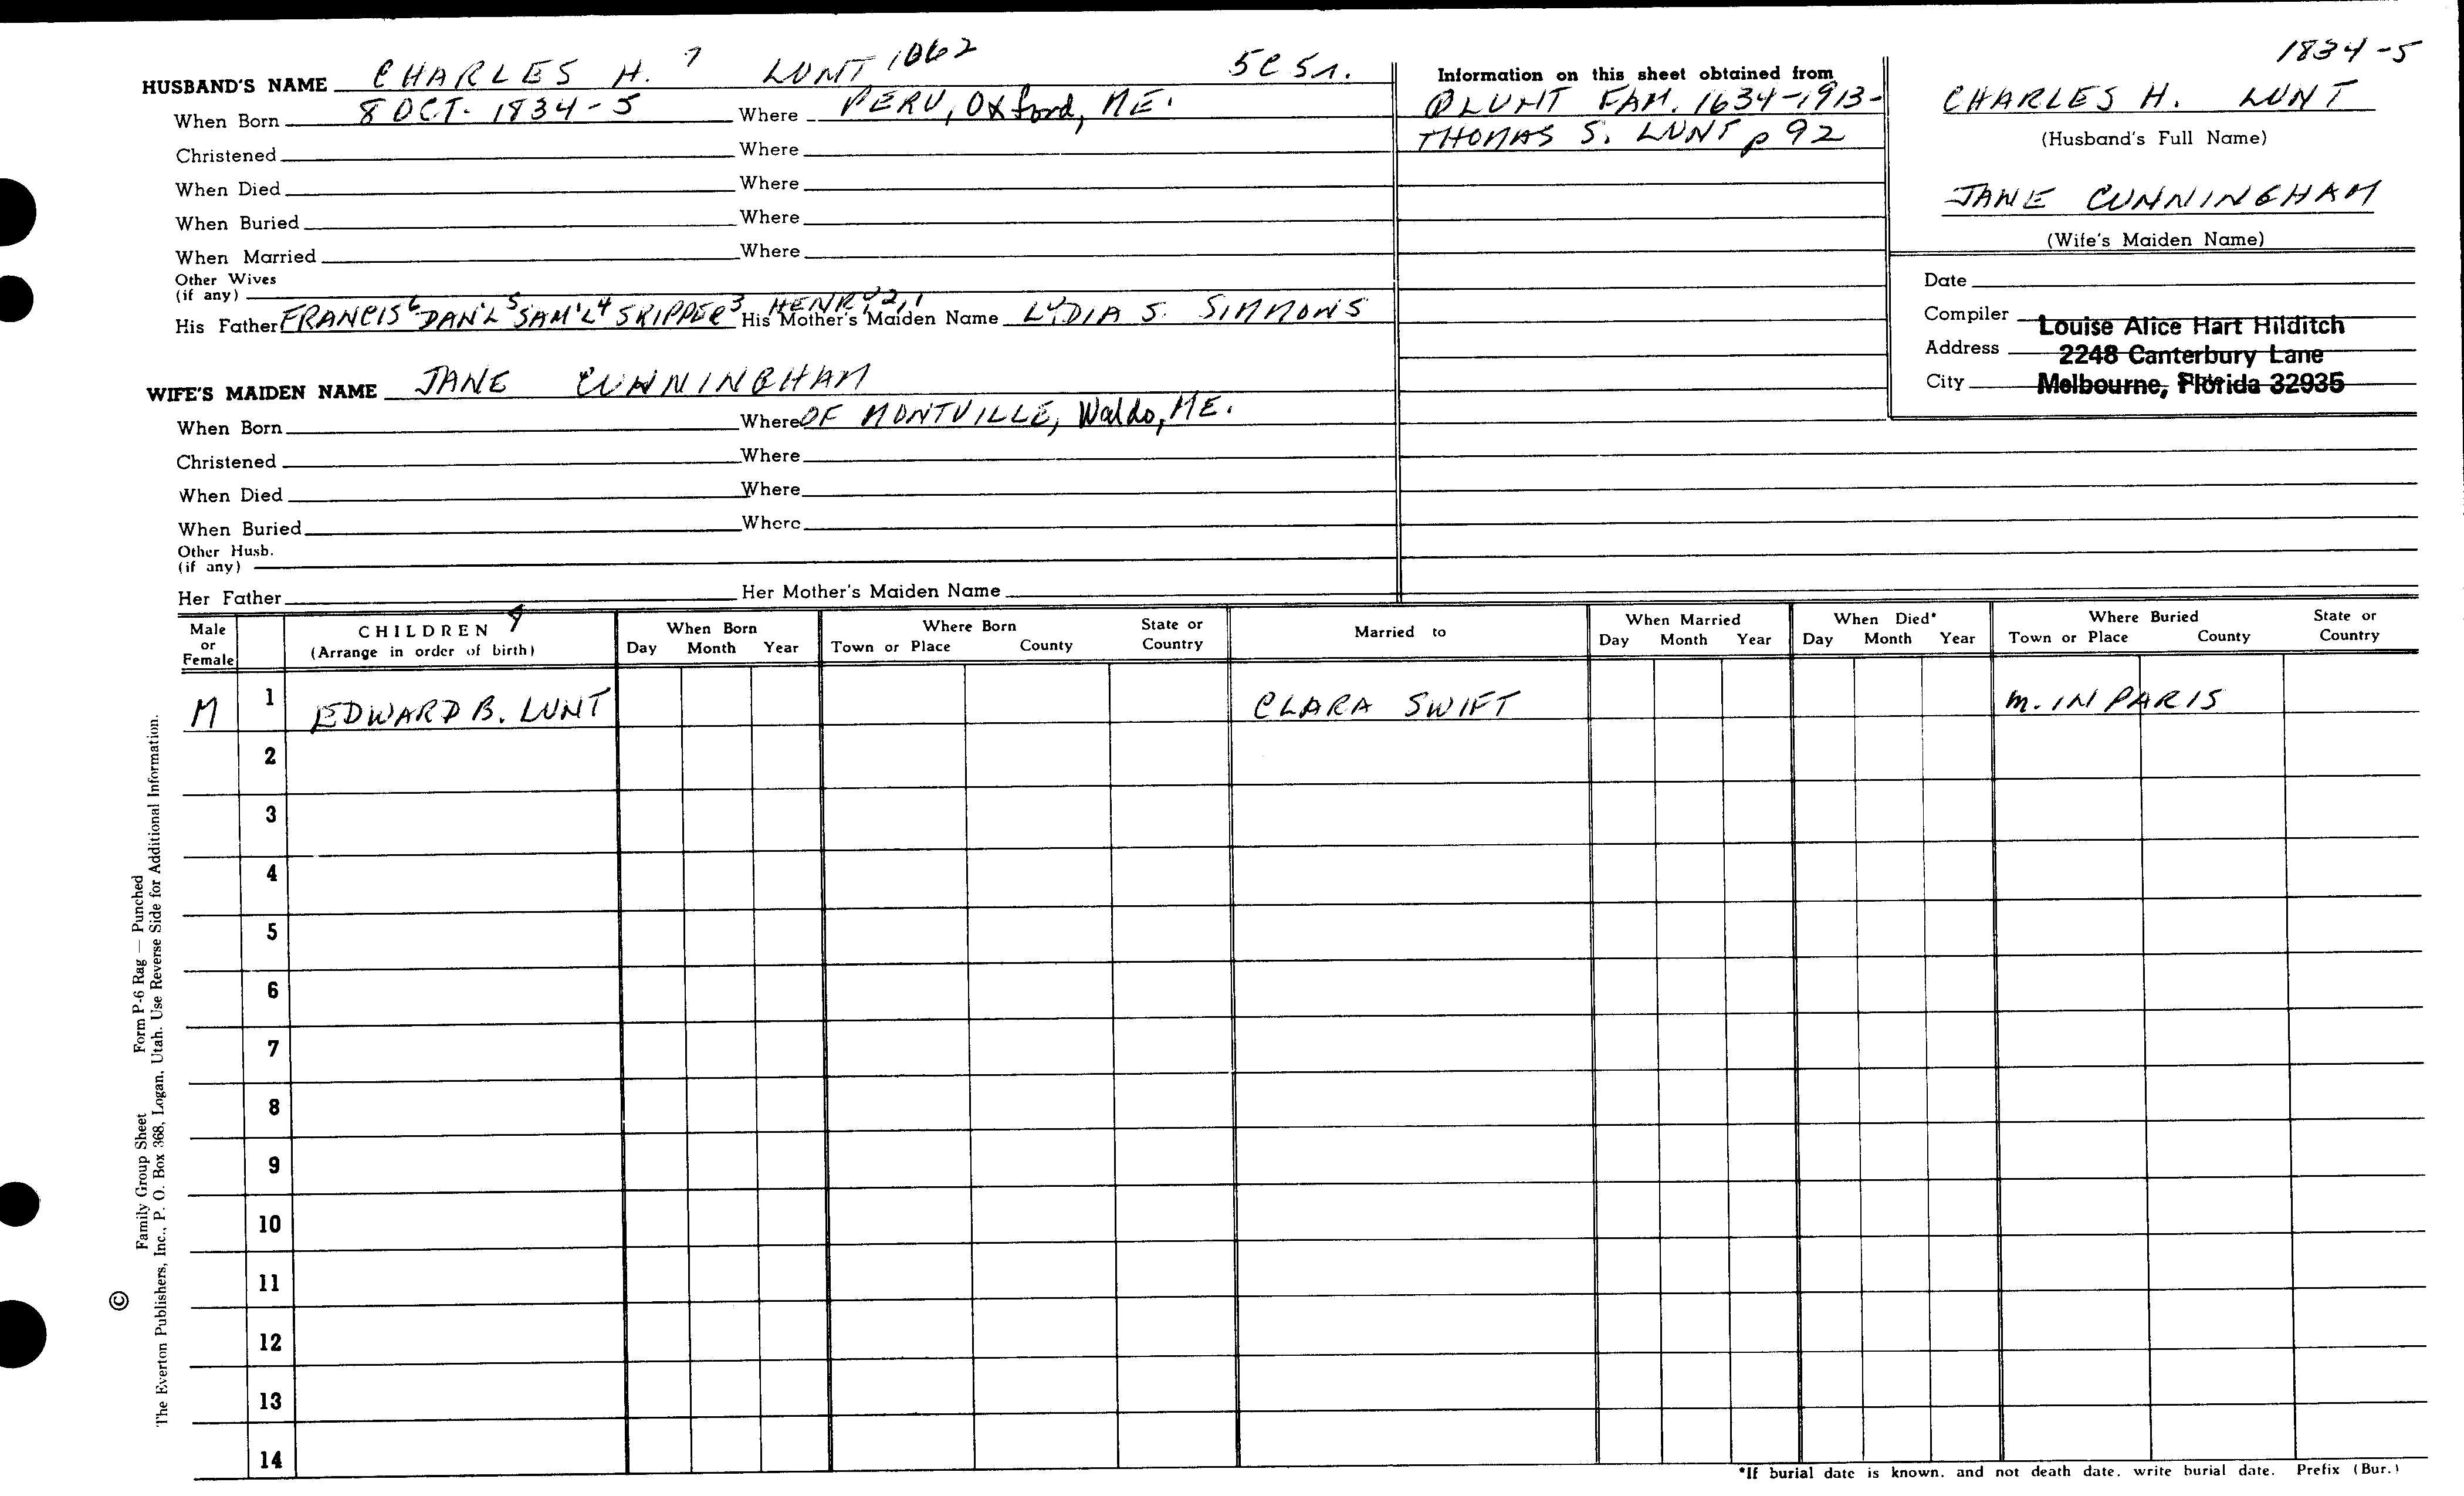 1834-5
HUSBAND'S NAME CHARLES H. 7 LUNT 1062 5C5r.
When Born 8 OCT. 1834-5 Where PERU, Oxford, ME.
Christened Where
When Died Where
When Buried Where
When Married Where
Other Wives
(if any)
His Father FRANCIS6 DAN'L5 SAM'L4 SKIPPER3 HENRY2,1 His Mother's Maiden Name LYDIA S. SIMMONS
WIFE'S MAIDEN NAME JANE CUNNINGHAM
When Born Where OF MONTVILLE, Waldo, ME.
Christened Where
When Died Where
When Buried Where
Other Husb.
(if any)
Her Father Her Mother's Maiden Name
Information on this sheet obtained from
LUNT FAM. 1634-1913-
THOMAS S. LUNT p 92
CHARLES H. LUNT
(Husband's Full Name)
JANE CUNNINGHAM
(Wife's Maiden Name)
Date
Compiler Louise Alice Hart Hilditch
Address 2248 Canterbury Lane
City Melbourne, Florida 32935
Male or Female CHILDREN (Arrange in order of birth) When Born Day Month Year Where Born Town or Place County State or Country Married to When Married Day Month Year When Died* Day Month Year Where Buried Town or Place County State or Country
M 1 EDWARD B. LUNT CLARA SWIFT m. IN PARIS
2
3
4
5
6
7
8
9
10
11
12
13
14
*If burial date is known, and not death date, write burial date. Prefix (Bur.)
© Family Group Sheet Form P-6 Rag — Punched
The Everton Publishers, Inc., P. O. Box 368, Logan, Utah. Use Reverse Side for Additional Information.